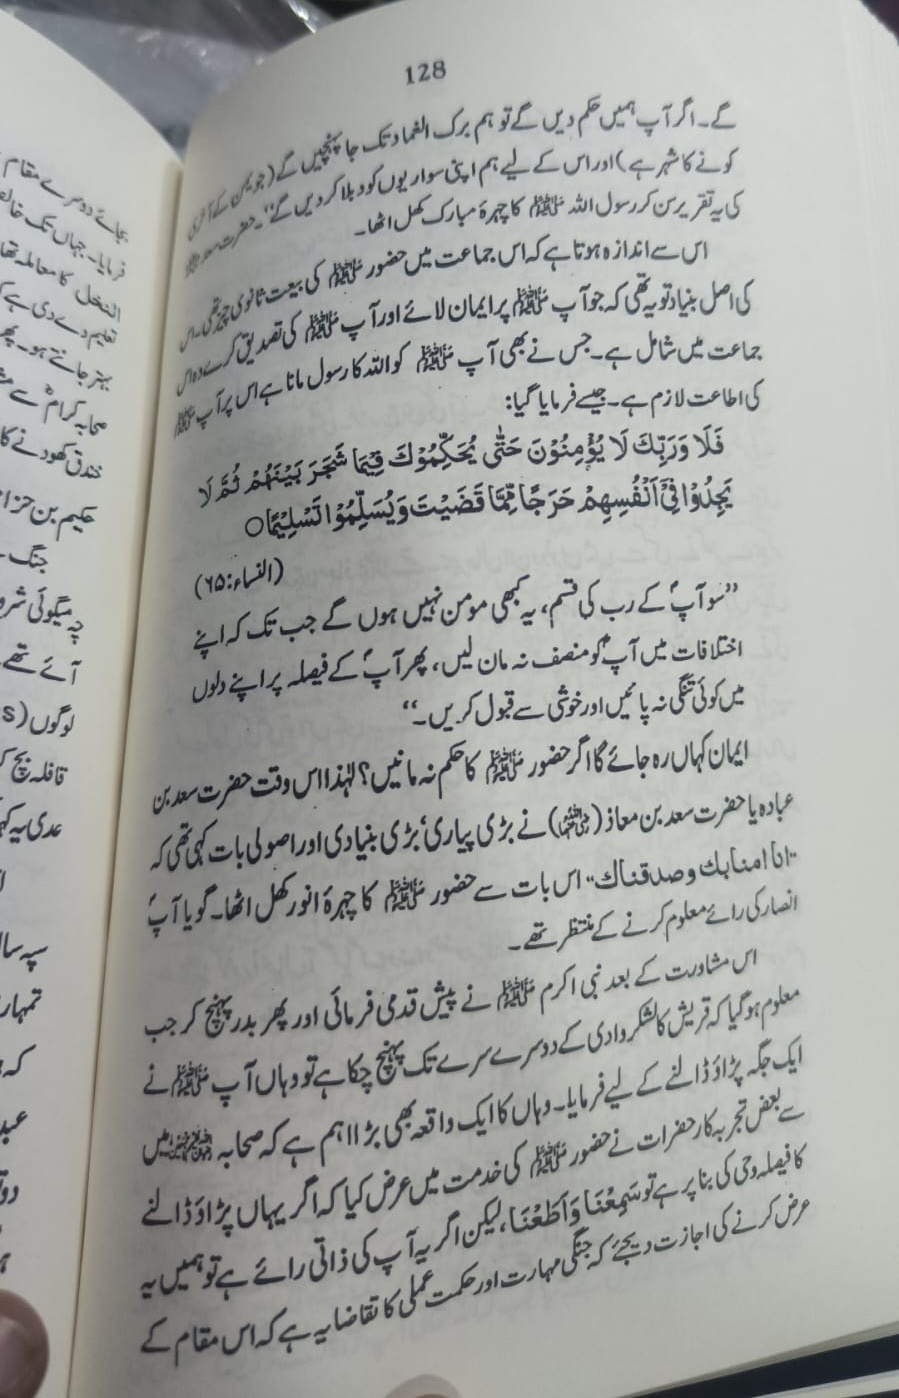 128
گے۔ اگر آپ ہمیں حکم دیں گے تو ہم برک الغماد تک جا پہنچیں گے (جو یمن کے آخری
کونے کا شہر ہے) اور اس کے لیے ہم اپنی سواریوں کو دبلا کر دیں گے‘‘۔ حضرت سعدؓ
کی یہ تقریر سن کر رسول اللہ ﷺ کا چہرۂ مبارک کھل اٹھا۔
اس سے اندازہ ہوتا ہے کہ اس جماعت میں حضور ﷺ کی بیعت ثانوی چیز تھی۔ اس
کی اصل بنیاد تو یہ تھی کہ جو آپ ﷺ پر ایمان لائے اور آپ ﷺ کی تصدیق کرے وہ اس
جماعت میں شامل ہے۔ جس نے بھی آپ ﷺ کو اللہ کا رسول مانا ہے اس پر آپ ﷺ
کی اطاعت لازم ہے۔ جیسے فرمایا گیا:
فَلَا وَرَبِّكَ لَا يُؤْمِنُوْنَ حَتّٰى يُحَكِّمُوْكَ فِيْمَا شَجَرَ بَيْنَهُمْ ثُمَّ لَا
يَجِدُوْا فِيْٓ اَنْفُسِهِمْ حَرَجًا مِّمَّا قَضَيْتَ وَيُسَلِّمُوْا تَسْلِيْمًا○
(النساء:۶۵)
’’سو آپؐ کے رب کی قسم، یہ کبھی مومن نہیں ہوں گے جب تک کہ اپنے
اختلافات میں آپؐ کو منصف نہ مان لیں، پھر آپؐ کے فیصلہ پر اپنے دلوں
میں کوئی تنگی نہ پائیں اور خوشی سے قبول کریں۔‘‘
ایمان کہاں رہ جائے گا اگر حضور ﷺ کا حکم نہ مانیں؟ لہٰذا اس وقت حضرت سعد بن
عبادہ یا حضرت سعد بن معاذ (رضی اللہ عنہما) نے بڑی پیاری‘ بڑی بنیادی اور اصولی بات کہی تھی کہ
"انا امنا بك و صدقناك" اس بات سے حضور ﷺ کا چہرۂ انور کھل اٹھا۔ گویا آپؐ
انصار کی رائے معلوم کرنے کے منتظر تھے۔
اس مشاورت کے بعد نبی اکرم ﷺ نے پیش قدمی فرمائی اور پھر بدر پہنچ کر جب
معلوم ہو گیا کہ قریش کا لشکر وادی کے دوسرے سرے تک پہنچ چکا ہے تو وہاں آپ ﷺ نے
ایک جگہ پڑاؤ ڈالنے کے لیے فرمایا۔ وہاں کا ایک واقعہ بھی بڑا اہم ہے کہ صحابہ میں
سے بعض تجربہ کار حضرات نے حضور ﷺ کی خدمت میں عرض کیا کہ اگر یہاں پڑاؤ ڈالنے
کا فیصلہ وحی کی بنا پر ہے تو سَمِعْنَا وَاَطَعْنَا، لیکن اگر یہ آپ کی ذاتی رائے ہے تو ہمیں یہ
عرض کرنے کی اجازت دیجئے کہ جنگی مہارت اور حکمت عملی کا تقاضا یہ ہے کہ اس مقام کے
بجائے دوسرے مقام
فرمایا۔ جہاں تک
النخل کا معاملہ تھا
تعلیم دے دی ہے
بہتر جانتے ہو۔ پھر
صحابہ کرامؓ سے
خندق کھودنے کا
حکیم بن حزام
جنگ
چہ میگوئی
آئے تھے
لوگوں (s
قافلہ بچ
عدی یہ
سپہ سالا
تمہار
کہ